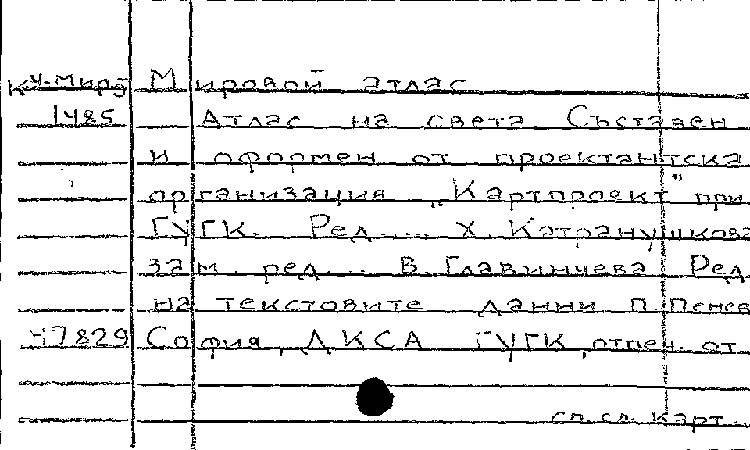 Мировой атлас
1485 Атлас на света Съставен
и оформен от проектантска
организация „Картпроект" при
ГУГК. Ред.... Х. Катранушкова
зам. ред.... В. Главинчева Ред
на текстовите данни П. Пенев
47829 София, ДКСА ГУГК, отпеч. от
сл. сл. карт.